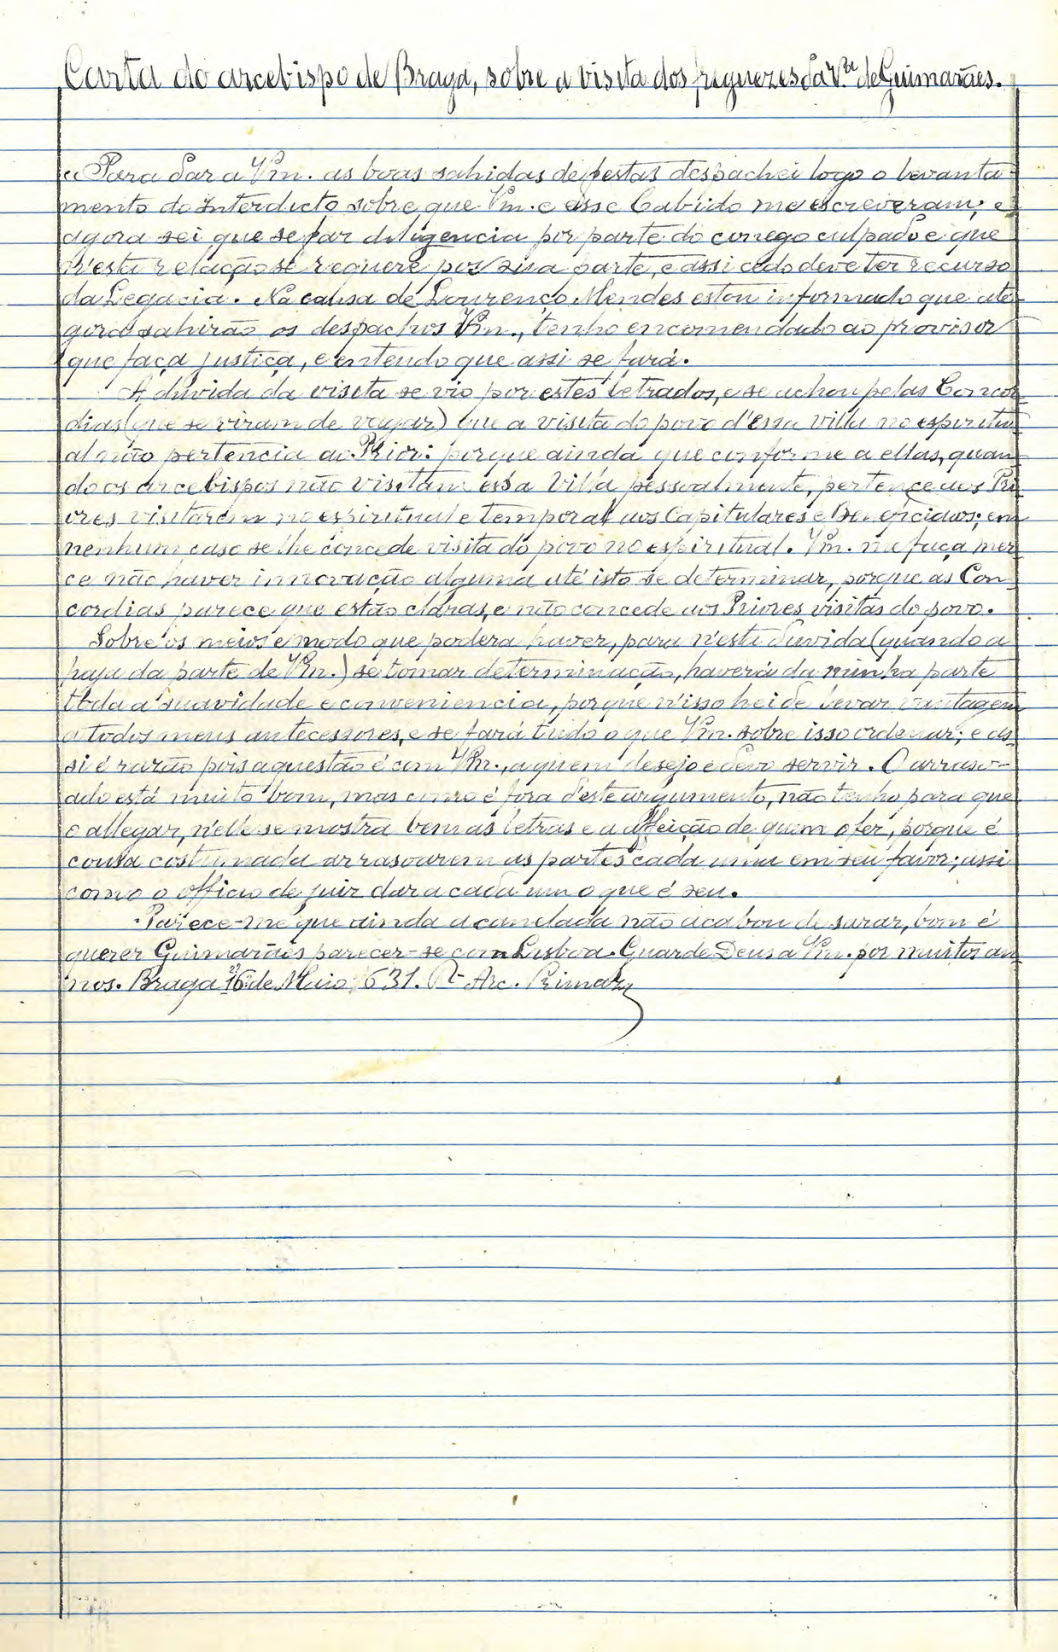 Carta do arcebispo de Braga, sobre a visita dos freguezes da Vª. de Guimarães.
«Para dar a Vm. as boas sahidas de festas despachei logo o levanta-
mento do Interdicto sobre que Vm. e esse Cabido me escreveram; e
agora sei que se faz diligencia por parte do conego culpado e que
n'esta relação se requere por sua parte, e assi cedo deve ter recurso
da Legacia. Na causa de Lourenço Mendes estou informado que até
gora sahirão os despachos Vm., tenho encomendado ao provisor
que faça justiça, e entendo que assi se fará.
A dúvida da visita se vio por estes letrados, e se achou pelas Concor-
dias (que se viram de vagar) que a visita do povo d'essa villa no espiritu-
al não pertencia ao Prior: porque ainda que conforme a ellas, quan-
do os arcebispos não visitam essa Villa pessoalmente, pertence aos Pri-
ores visitarem no espiritual e temporal aos Capitulares e Beneficiados; em
nenhum caso se lhe concede visita do povo no espiritual. Vm. me faça mer-
ce não haver innovação alguma até isto se determinar, porque as Con-
cordias parece que estão claras, e não concede aos Priores visitas do povo.
Sobre os meios e modo que poderá haver, para n'esta duvida (quando a
haja da parte de Vm.) se tomar determinação, haverá da minha parte
toda a suavidade e conveniencia, porque n'isso hei de levar vantagem
a todos meus antecessores, e se fará tudo o que Vm. sobre isso ordenar; e as-
si é razão pois a questão é com Vm., a quem desejo e devo servir. O arraso-
ado está muito bom, mas como é fóra d'este argumento, não tenho para que
o allegar, n'elle se mostra bem as letras e a affeição de quem o fez, porque é
cousa costumada arrasoarem as partes cada uma em seu favor; assi
como o officio de juiz dar a cada um o que é seu.
Parece-me que ainda a canelada não acabou de sarar, bom é
querer Guimarães parecer-se com Lisboa. Guarde Deus a Vm. por muitos an-
nos. Braga 16 de Maio 1631. R. Arc. Primaz